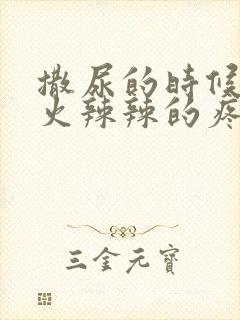 撒尿的時候
火辣辣的疼
三金元寶